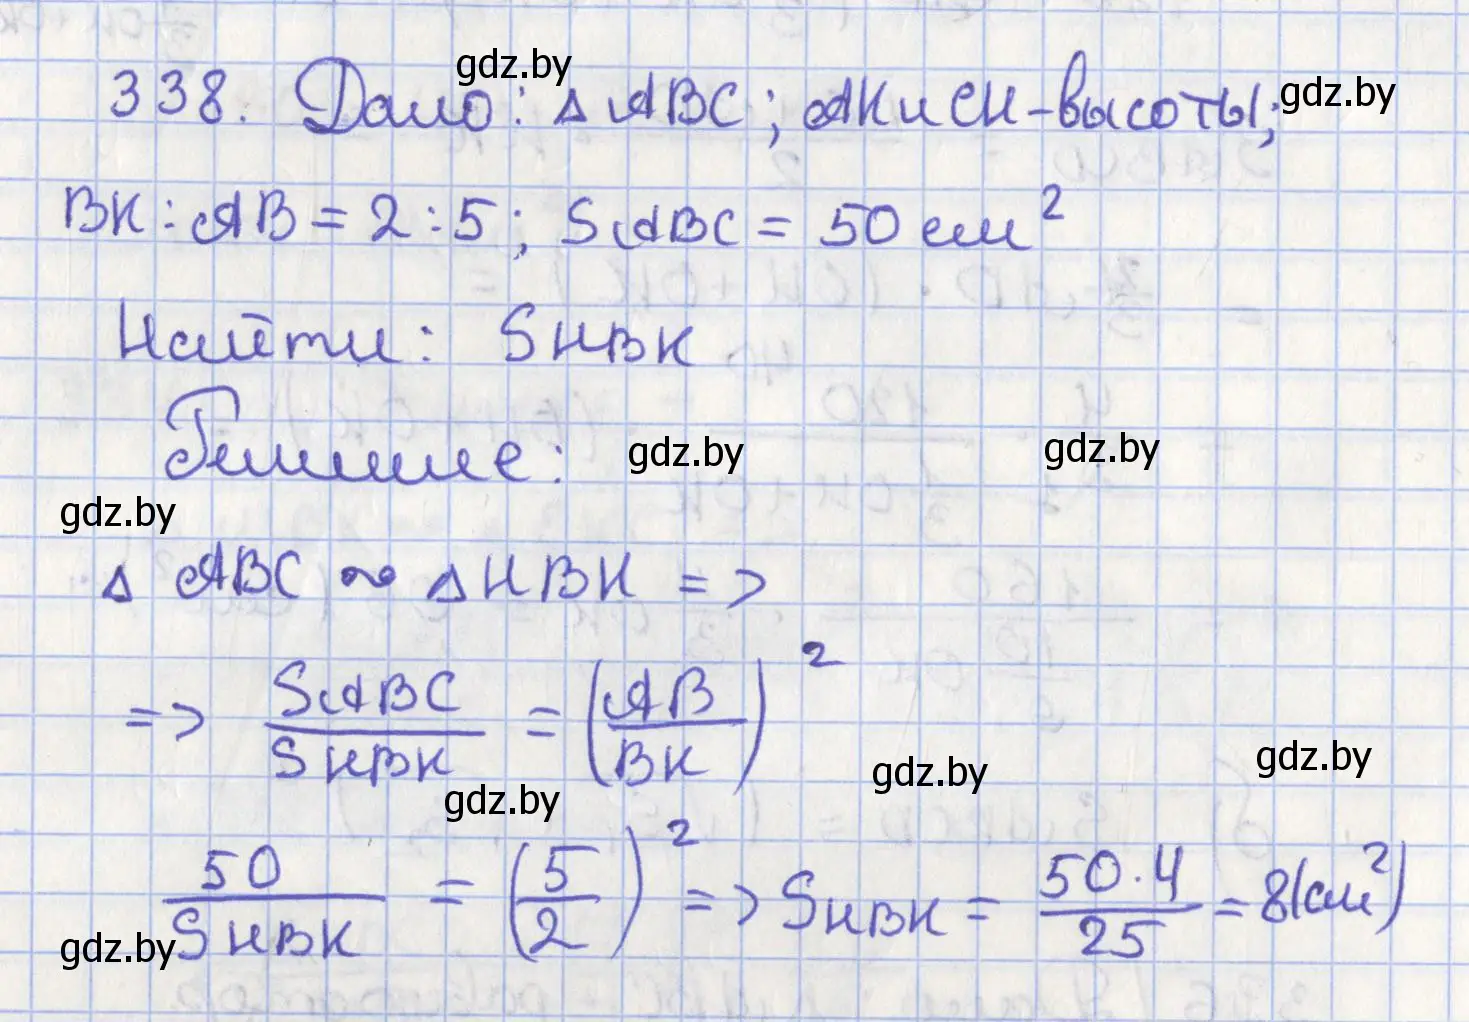 gdz.by
338. Дано: △ABC; AK и CH - высоты; gdz.by
BK : AB = 2 : 5; SABC = 50 см²
Найти: SHBK
Решение: gdz.by gdz.by
gdz.by
△ ABC ∾ △HBK =>
=> SABC/SHBK = (AB/BK)²
gdz.by gdz.by
gdz.by
50/SHBK = (5/2)² => SHBK = 50·4/25 = 8(см²)
gdz.by